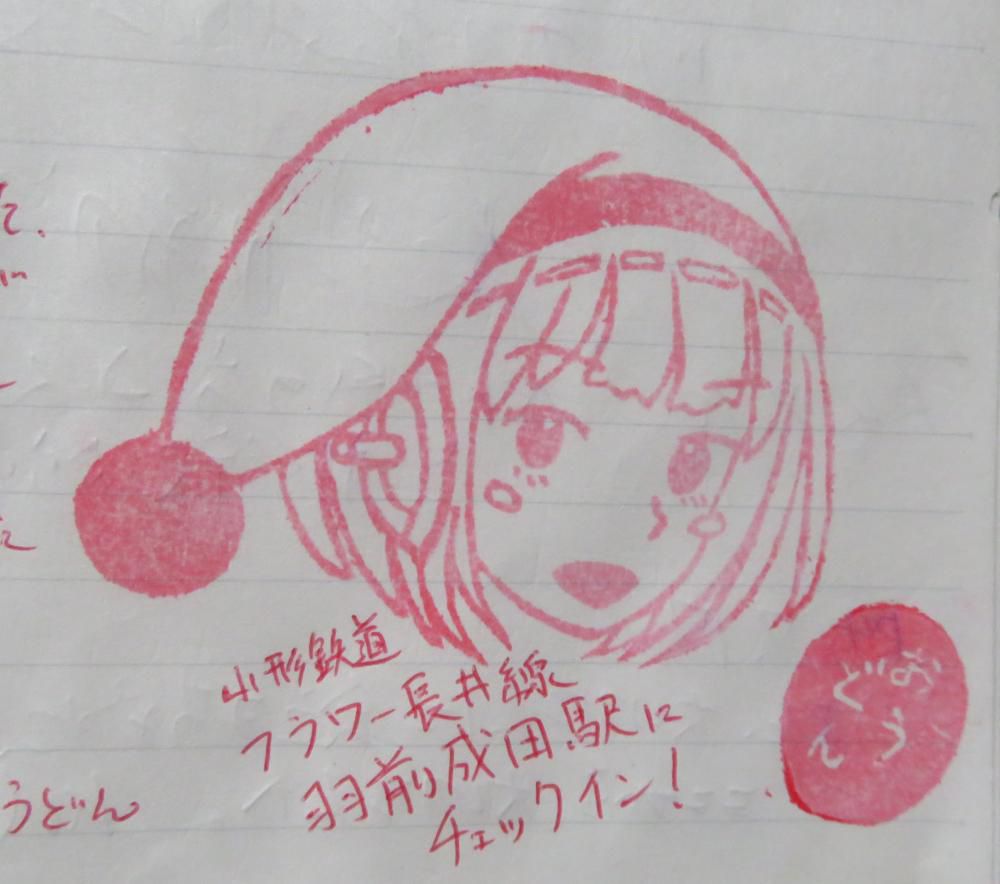 て.
山形鉄道
フラワー長井線
羽前成田駅に
チェックイン!
うどん
おうどん